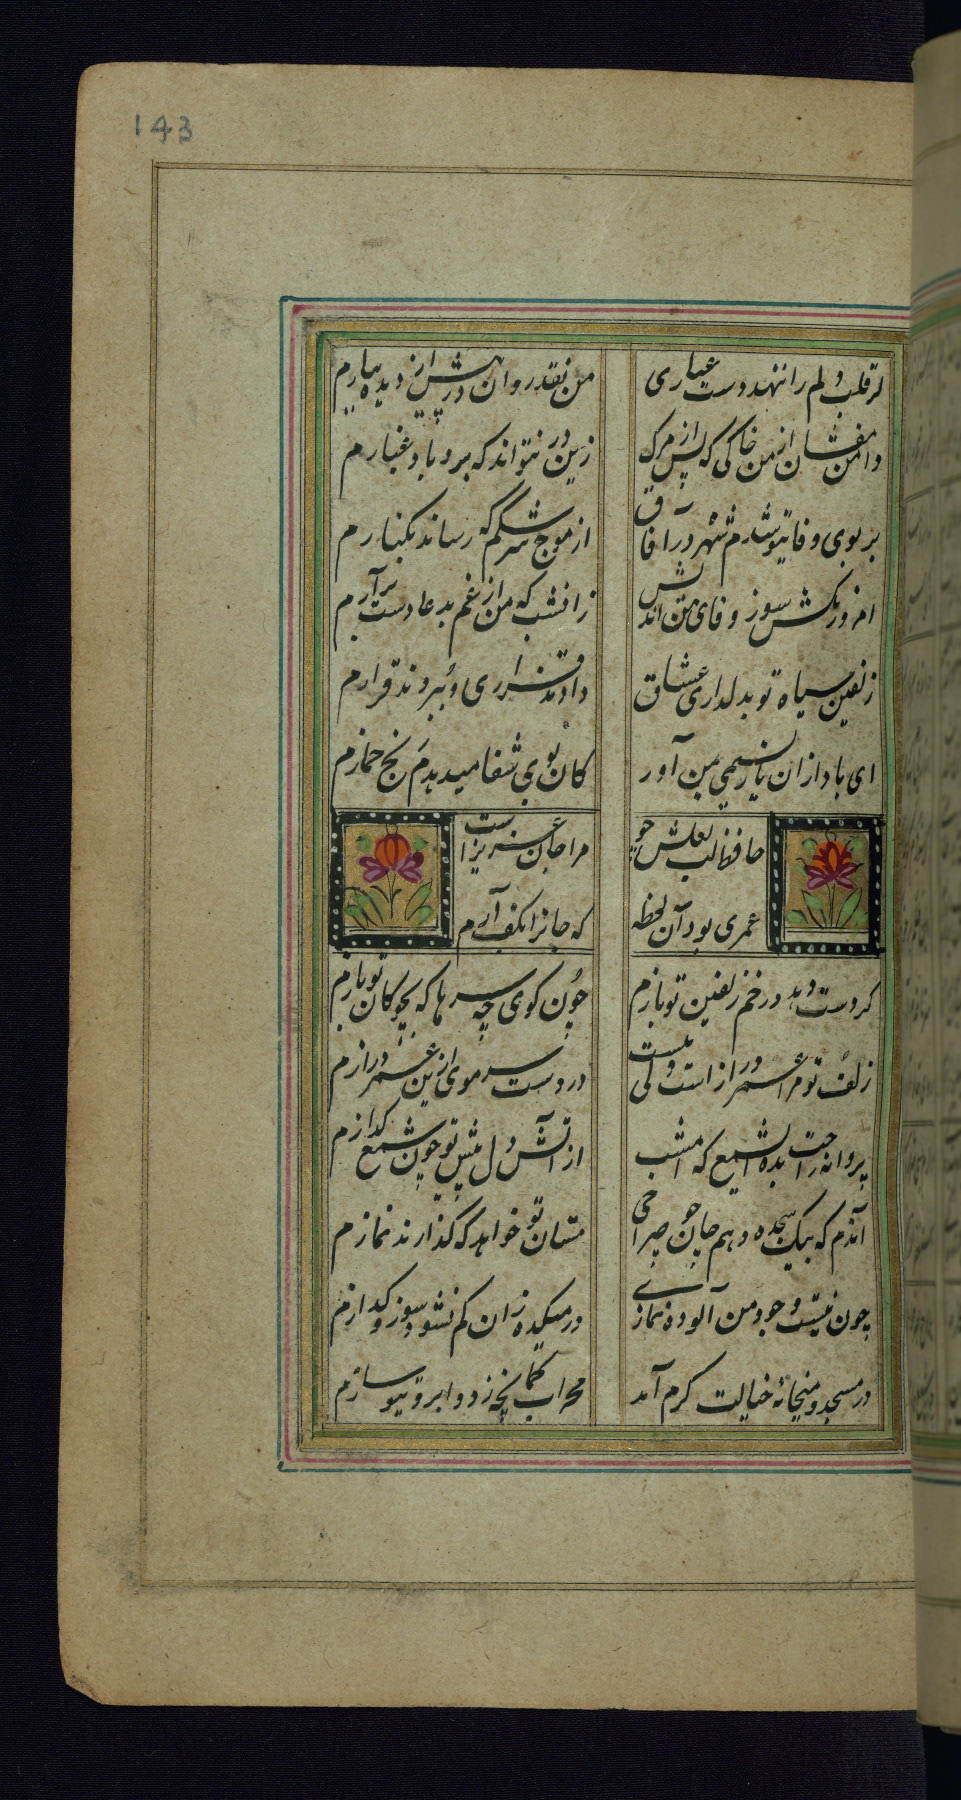 143
گر قلب دلم را ننهد دوست عیاری
من نقد روان در رهش از دیده ببارم
دامن مفشان از من خاکی که پس از مرگ
زین در نتواند که برد باد غبارم
بر بوی وفا تو شدم شهر در آفاق
از موج سرشکم که رساند بکنارم
امروز مکش سر ز وفای من اندیش
زانشب که من از غم بدعا دست برآرم
زلفین سیاه تو بدلداری عشاق
دادند قراری و ببردند قرارم
ای باد ازان یار نسیمی بمن آور
کان بوی شفا میدهدم رنج خمارم
حافظ لب لعلش چو
مرا جان عزیزاست
عمری بود آن لحظه
که جانرا بکف آرم
گر دست دهد در خم زلفین تو بازم
چون کوی چه سرها که بچوکان تو بازم
زلف تو مرا عمر دراز است ولی نیست
در دست سر موی ازین عمر درازم
پروانه راحت بده ایشمع که امشب
از آتش دل پیش تو چون شمع کدازم
آندم که بیک سجده دهم جان چو صراحی
مستان تو خواهد که گذارند نمازم
چون نیست وجود من آلوده نمازی
در میکده زان کم نشود سوز و کدازم
در مسجد و میخانه خیالت کرم آمد
محراب کمانچه ز دو ابرو تو سازم